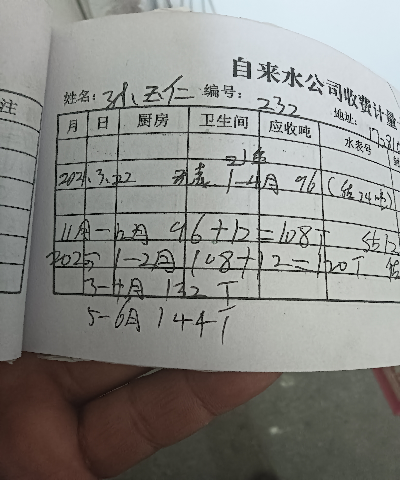 自来水公司收费计量
姓名: 孙玉仁 编号: 232 地址: 17-810
注
月 日 厨房 卫生间 应收吨 水表号
2024.3.22 1-4月 96 (估24吨)
11月-12月 96+12=108T 5512
2025 1-2月 108+12=120T 估
3-4月 132T
5-6月 144T